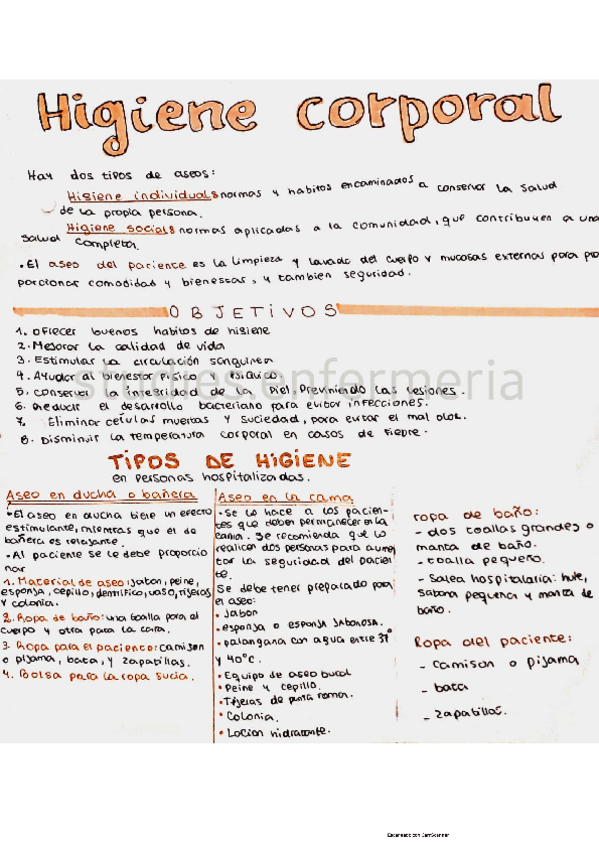 Higiene corporal
Hay dos tipos de aseos:
Higiene individual: normas y habitos encaminados a conservar la salud
de la propia persona.
Higiene social: normas aplicadas a la comunidad, que contribuyen a una
salud completa.
• El aseo del paciente es la limpieza y lavado del cuerpo y mucosas externas para pro
porcionar comodidad y bienessar, y tambien seguridad.
OBJETIVOS
1. Ofrecer buenos habitos de higiene
2. Mejorar la calidad de vida
3. Estimular la circulación sanguinea
4. Ayudar al bienestar fisico y psiquico.
5. Conservar la integridad de la piel, previniendo las lesiones.
6. Reducir el desarrollo bacteriano para evitar infecciones.
7. Eliminar celulas muertas y suciedad, para evitar el mal olor.
8. Disminuir la temperatura corporal en casos de fiebre.
studies.enfermeria
TIPOS DE HIGIENE
en personas hospitalizadas.
Aseo en ducha o bañera
• El aseo en ducha tiene un efecto
estimulante, mientras que el de
bañera es relajante.
• Al paciente se le debe proporcio
nar
1. Material de aseo: jabon, peine,
esponja, cepillo, dentifrico, vaso, tijeras
y colonia.
2. Ropa de baño: una toalla para el
cuerpo y otra para la cara.
3. Ropa para el paciente: camison
o pijama, bata, y zapatillas.
4. Bolsa para la ropa sucia.
Aseo en la cama
• Se lo hace a los pacien-
tes que deben permanecer en la
cama. Se recomienda que lo
realicen dos personas para aumen
tar la seguridad del pacien
te.
Se debe tener preparado para
el aseo:
• Jabon
• esponja o esponja jabonosa.
• palangana con agua entre 37°
y 40°C.
• Equipo de aseo bucal
• Peine y cepillo.
• Tijeras de punta roma.
• Colonia.
• Locion hidratante.
ropa de baño:
- dos toallas grandes o
manta de baño.
- toalla pequeña.
- Salea hospitalaria: hule,
sabana pequeña y manta de
baño.
Ropa del paciente:
- Camison o pijama
- bata
- zapatillas.
Escaneado con CamScanner